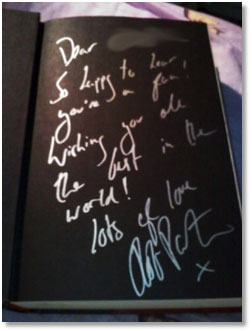 Dear
So happy to hear
you're a fan!
Wishing you all
the best in the
world!
lots of love